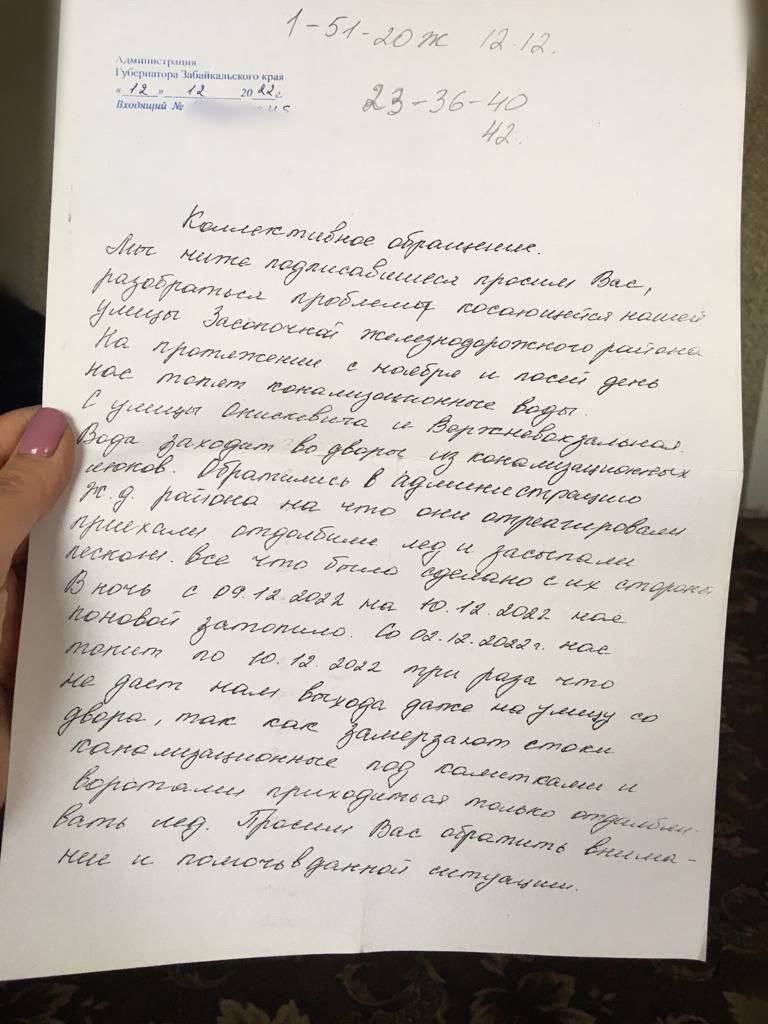 1-51-20ж 12.12.
Администрация
Губернатора Забайкальского края
«12» 12 2022 г.
Входящий №
23-36-40
42.
Коллективное обращение.
Мы ниже подписавшиеся просим Вас,
разобраться проблемы косающийся нашей
улицы Засопочной железнодорожного района
На протяжении с ноября и посей день
нас топят конализационные воды.
С улицы Онискевича и Верхневокзальная.
Вода заходит во дворы из конализационных
люков. Обратились в администрацию
ж.д. района на что они отреагировали
приехали отдолбили лед и засыпали
песком. все что было сделано с их стороны
В ночь с 09.12.2022 на 10.12.2022 нас
поновой затопило. Со 02.12.2022г. нас
топит по 10.12.2022 три раза что
не дает нам выхода даже на улицу со
двора, так как замерзают стоки
канализационные под калитками и
воротами приходиться только отдалбли-
вать лед. Просим Вас обратить внима-
ние и помочь в данной ситуации.